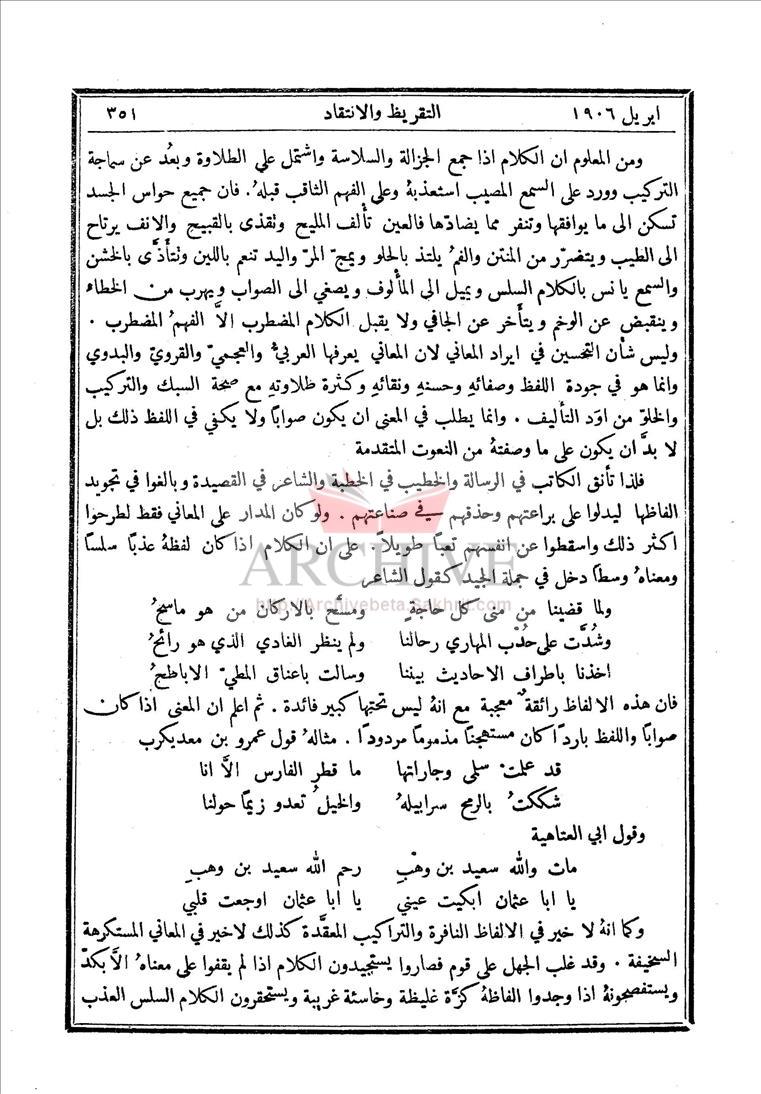 ابريل ١٩٠٦ التقريظ والانتقاد ٣٥١
ومن المعلوم ان الكلام اذا جمع الجزالة والسلاسة واشتمل على الطلاوة وبعُد عن سماجة
التركيب وورد على السمع المصيب استعذبهُ وعلى الفهم الثاقب قبلهُ. فان جميع حواس الجسد
تسكن الى ما يوافقها وتنفر مما يضادّها فالعين تألف المليح وتقذى بالقبيح والانف يرتاح
الى الطيب ويتضرّر من المنتن والفمُ يلتذ بالحلو ويمجّ المرّ واليد تنعم باللين وتتأذَّى بالخشن
والسمع يانس بالكلام السلس ويميل الى المألوف ويصغي الى الصواب ويهرب من الخطاء
وينقبض عن الوخم ويتأخر عن الجافي ولا يقبل الكلام المضطرب الاَّ الفهمُ المضطرب .
وليس شأن التحسين في ايراد المعاني لان المعاني يعرفها العربيُّ والعجميّ والقرويّ والبدوي
وانما هو في جودة اللفظ وصفائهِ وحسنهِ ونقائهِ وكثرة طلاوتهِ مع صحة السبك والتركيب
والخلوّ من اوَد التأليف . وانما يطلب في المعنى ان يكون صوابًا ولا يكفي في اللفظ ذلك بل
لا بدَّ ان يكون على ما وصفتهُ من النعوت المتقدمة
فلذا تأنق الكاتب في الرسالة والخطيب في الخطبة والشاعر في القصيدة وبالغوا في تجويد
الفاظها ليدلوا على براعتهم وحذقهم في صناعتهم . ولو كان المدار على المعاني فقط لطرحوا
اكثر ذلك واسقطوا عن انفسهم تعبًا طويلاً. على ان الكلام اذا كان لفظهُ عذبًا سلسًا
ومعناهُ وسطًا دخل في جملة الجيد كقول الشاعر
ولما قضينا من منى كل حاجةٍ ومسَّح بالاركان من هو ماسحُ
وشُدَّت على حُدْب المهاري رحالنا ولم ينظر الغادي الذي هو رائحُ
اخذنا باطراف الاحاديث بيننا وسالت باعناق المطيّ الاباطحُ
فان هذه الالفاظ رائقةٌ معجبة مع انهُ ليس تحتها كبير فائدة . ثم اعلم ان المعنى اذا كان
صوابًا واللفظ باردًا كان مستهجنًا مذمومًا مردودًا . مثالهُ قول عمرو بن معديكرب
قد علمت سلمى وجاراتها ما قطر الفارس الاَّ انا
شككتُ بالرمح سرابيلهُ والخيلُ تعدو زيمًا حولنا
وقول ابي العتاهية
مات والله سعيد بن وهْبِ رحم الله سعيد بن وهبِ
يا ابا عثمان ابكيت عيني يا ابا عثمان اوجعت قلبي
وكما انهُ لا خير في الالفاظ النافرة والتراكيب المعقَّدة كذلك لاخير في المعاني المستكرهة
السخيفة . وقد غلب الجهل على قوم فصاروا يستجيدون الكلام اذا لم يقفوا على معناهُ الاَّ بكدّ
ويستفصحونهُ اذا وجدوا الفاظهُ كزَّة غليظة وخاسئة غريبة ويستحقرون الكلام السلس العذب
ARCHIVE
http://Archivebeta.Sakhrit.com